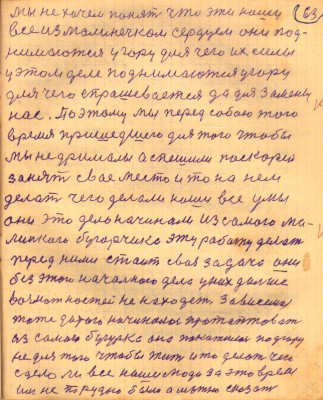 63
мы не хочем понят что эти наши
все измалинечком сердцем они под-
нимаются угору для чего их силы
у этом деле поднимаются угору
для чего спрашевается да для замены
нас. Поэтому мы перед собою того
время пришедшего для того чтобы
мы не дримали а спешили поскорей
занят свае место и то на нем
делат чего делали наши все умы
они это дело начинали из самого ма-
линкого бугорчика эту работу делат
перед ними стаит своя задача они
без этого началного дела у них далше
возмот ностей не находет Зависима
тоже дорога начиналос протоптоват
из самого бугурка оно покотилос подгору
не для того чтобы жит и то делат чего
сделали все наши люди за это время
им не по рудно было а можно сказат